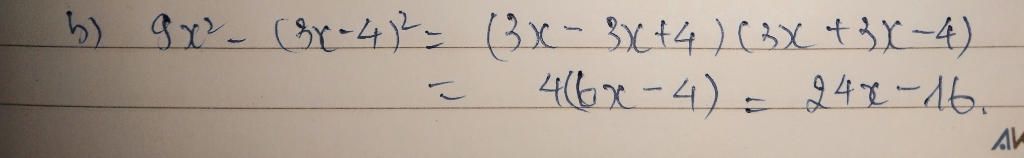 b) 9x² - (3x-4)² = (3x - 3x+4)(3x +3x-4)
= 4(6x - 4) = 24x - 16.